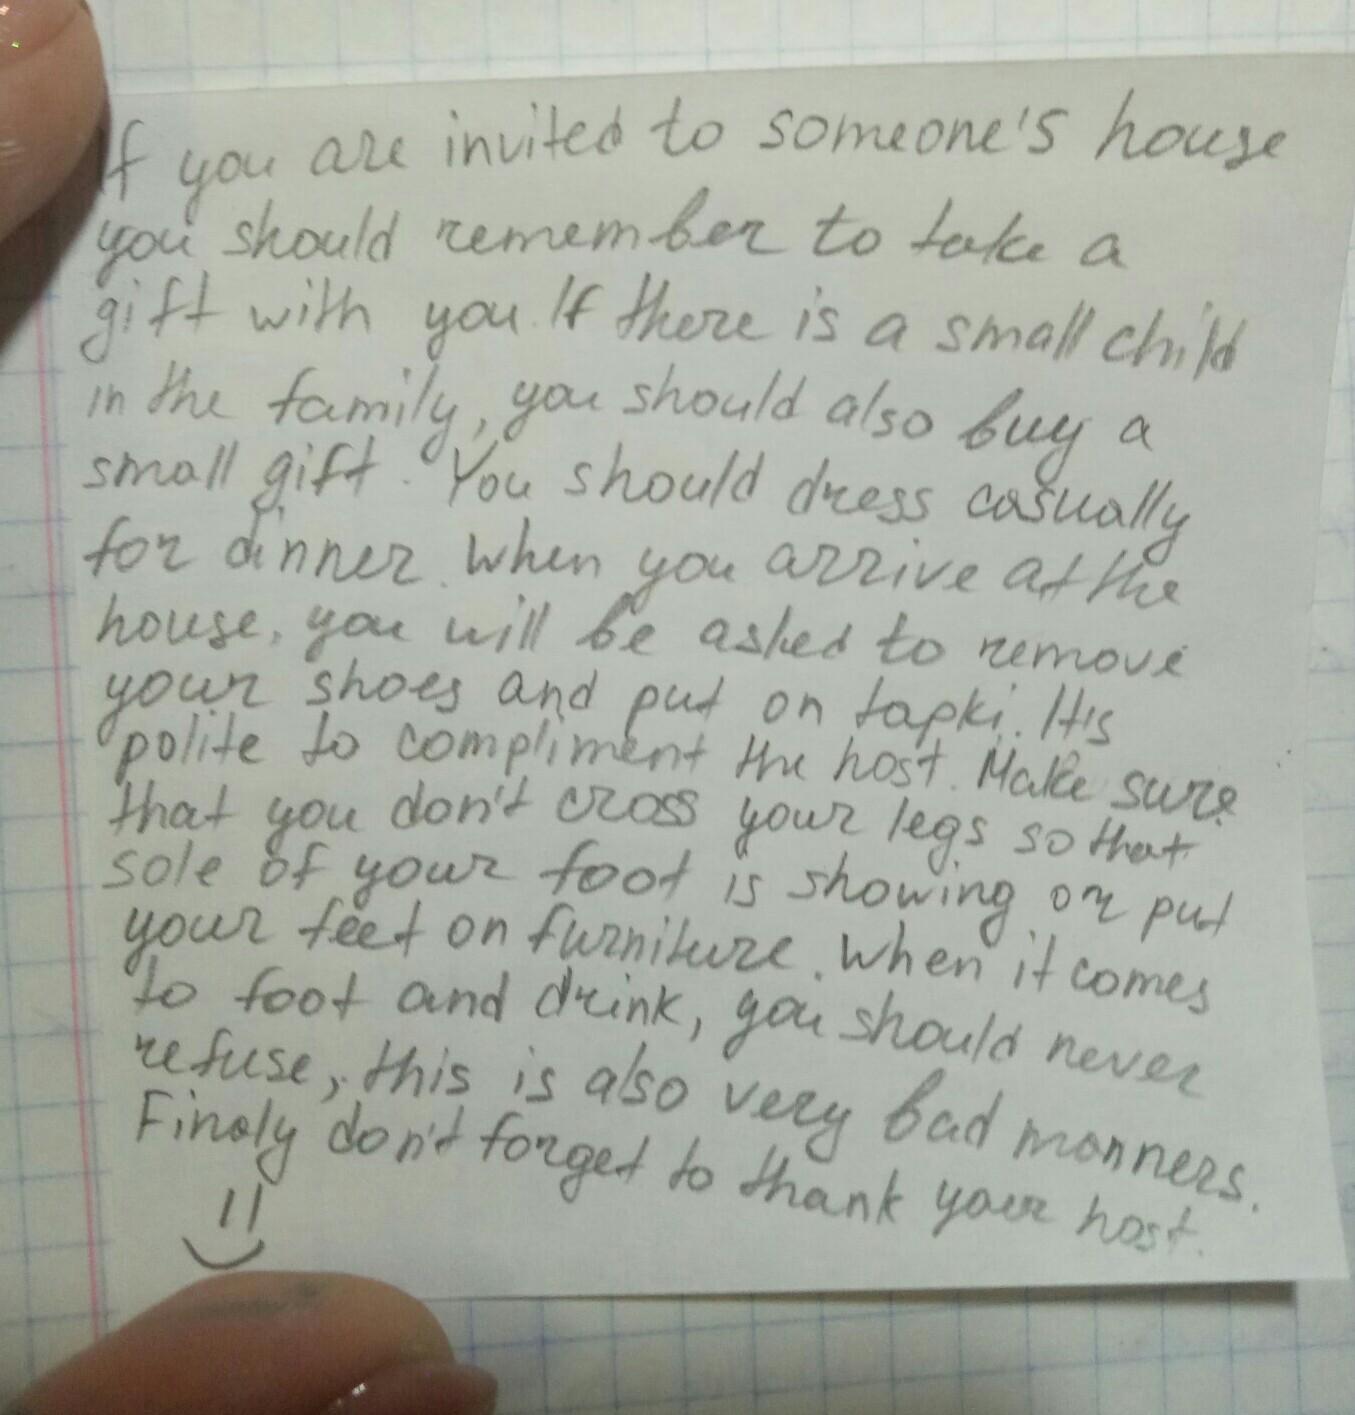 If you are invited to someone's house
you should remember to take a
gift with you. If there is a small child
in the family, you should also buy a
small gift. You should dress casually
for dinner. When you arrive at the
house, you will be asked to remove
your shoes and put on tapki. It's
polite to compliment the host. Make sure
that you don't cross your legs so that
sole of your foot is showing or put
your feet on furniture. When it comes
to foot and drink, you should never
refuse, this is also very bad manners.
Finaly don't forget to thank your host.